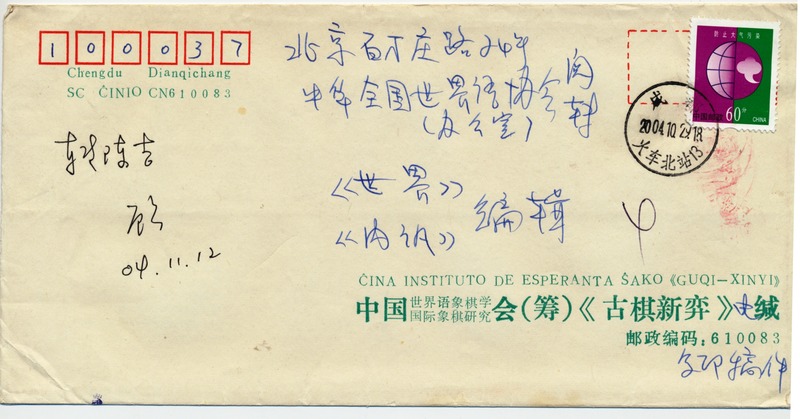 100037
Chengdu Dianqichang
SC ĈINIO CN610083
北京百万庄路24号
中华全国世界语协会
(办公室)
《世界》
《内讯》 编辑
04.11.12
防止大气污染
中国邮政 60分 CHINA
2004.10.29.18
火车北站13
ĈINA INSTITUTO DE ESPERANTA ŜAKO《GUQI-XINYI》
中国世界语象棋学
国际象棋研究会(筹)《古棋新弈》缄
邮政编码:610083
复印稿件